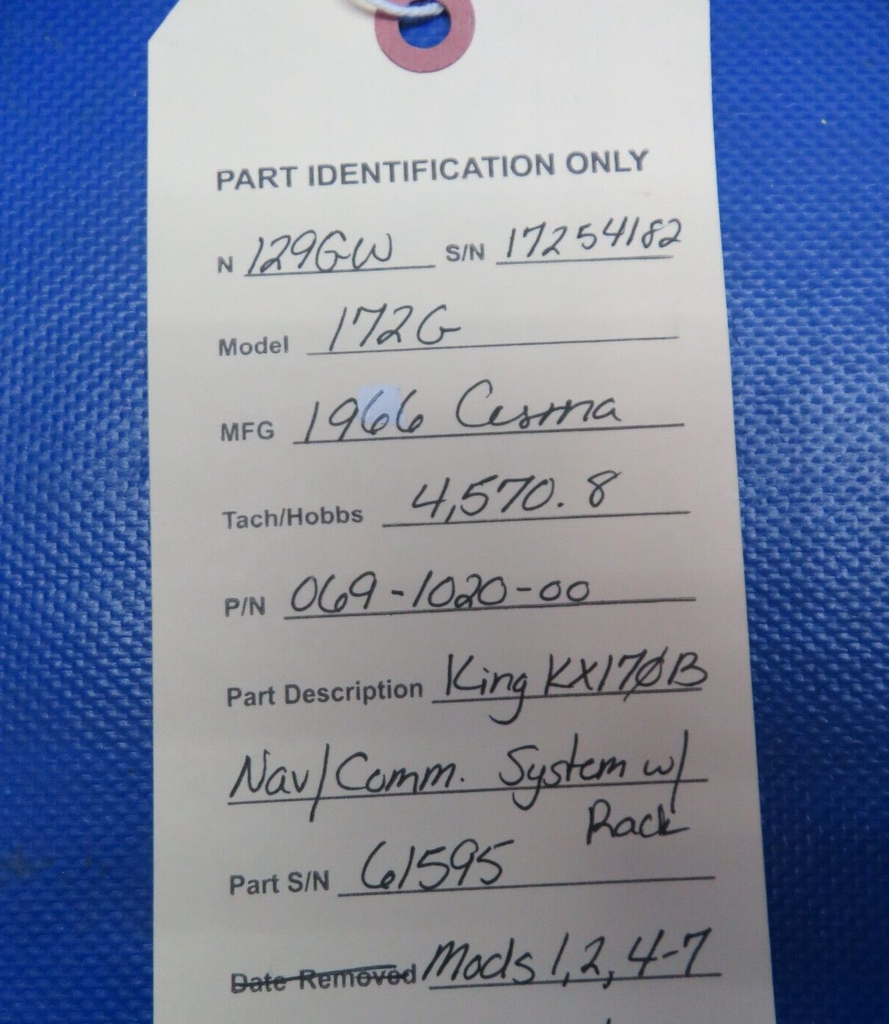 PART IDENTIFICATION ONLY
N 129GW S/N 17254182
Model 172G
MFG 1966 Cessna
Tach/Hobbs 4,570.8
P/N 069-1020-00
Part Description King KX170B
Nav/Comm. System w/
Rack
Part S/N 61595
Date Removed Mods 1,2,4-7